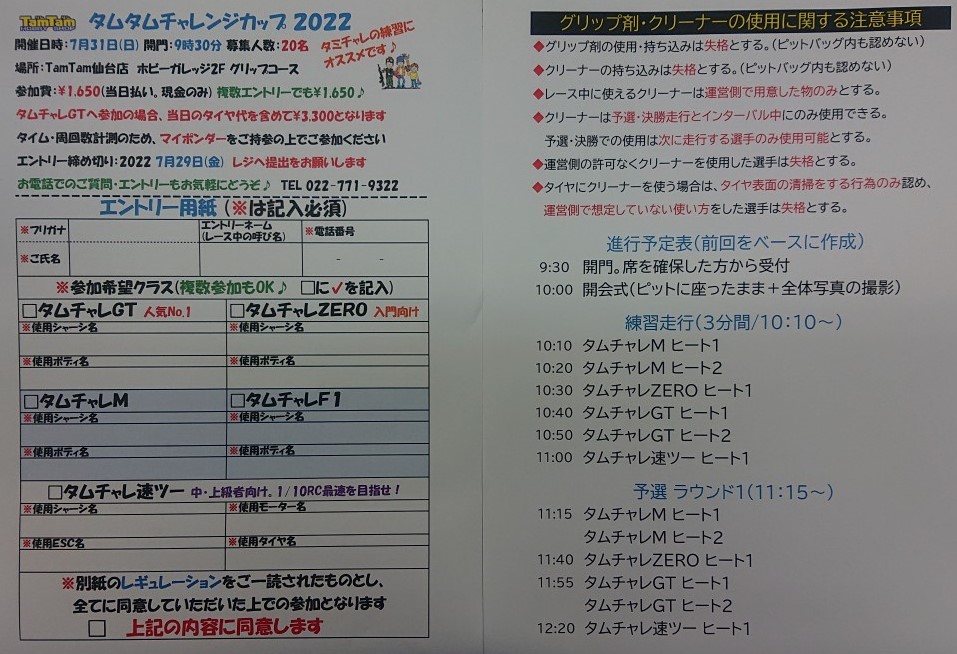 TamTam タムタムチャレンジカップ 2022
開催日時：7月31日(日) 開門：9時30分 募集人数：20名
タミチャレの練習に
オススメです♪
場所：TamTam仙台店 ホビーガレッジ2F グリップコース
参加費：¥1,650(当日払い。現金のみ) 複数エントリーでも¥1,650♪
タムチャレGTへ参加の場合、当日のタイヤ代を含めて¥3,300となります
タイム・周回数計測のため、マイポンダーをご持参の上でご参加ください
エントリー締め切り：2022 7月29日(金) レジへ提出をお願いします
お電話でのご質問・エントリーもお気軽にどうぞ♪ TEL 022-771-9322
エントリー用紙(※は記入必須)
※フリガナ
エントリーネーム
(レース中の呼び名)
※電話番号
※ご氏名
- -
※参加希望クラス(複数参加もOK♪ □に✓を記入)
□タムチャレGT 人気No.1
□タムチャレZERO 入門向け
※使用シャーシ名
※使用シャーシ名
※使用ボディ名
※使用ボディ名
□タムチャレM
□タムチャレF1
※使用シャーシ名
※使用シャーシ名
※使用ボディ名
※使用ボディ名
□タムチャレ速ツー 中・上級者向け。1/10RC最速を目指せ！
※使用シャーシ名
※使用モーター名
※使用ESC名
※使用タイヤ名
※別紙のレギュレーションをご一読されたものとし、
全てに同意していただいた上での参加となります
□ 上記の内容に同意します
グリップ剤・クリーナーの使用に関する注意事項
◆グリップ剤の使用・持ち込みは失格とする。(ピットバッグ内も認めない)
◆クリーナーの持ち込みは失格とする。(ピットバッグ内も認めない)
◆レース中に使えるクリーナーは運営側で用意した物のみとする。
◆クリーナーは予選・決勝走行とインターバル中にのみ使用できる。
予選・決勝での使用は次に走行する選手のみ使用可能とする。
◆運営側の許可なくクリーナーを使用した選手は失格とする。
◆タイヤにクリーナーを使う場合は、タイヤ表面の清掃をする行為のみ認め、
運営側で想定していない使い方をした選手は失格とする。
進行予定表(前回をベースに作成)
9:30 開門。席を確保した方から受付
10:00 開会式(ピットに座ったまま＋全体写真の撮影)
練習走行(3分間/10:10～)
10:10 タムチャレM ヒート1
10:20 タムチャレM ヒート2
10:30 タムチャレZERO ヒート1
10:40 タムチャレGT ヒート1
10:50 タムチャレGT ヒート2
11:00 タムチャレ速ツー ヒート1
予選 ラウンド1(11:15～)
11:15 タムチャレM ヒート1
タムチャレM ヒート2
11:40 タムチャレZERO ヒート1
11:55 タムチャレGT ヒート1
タムチャレGT ヒート2
12:20 タムチャレ速ツー ヒート1